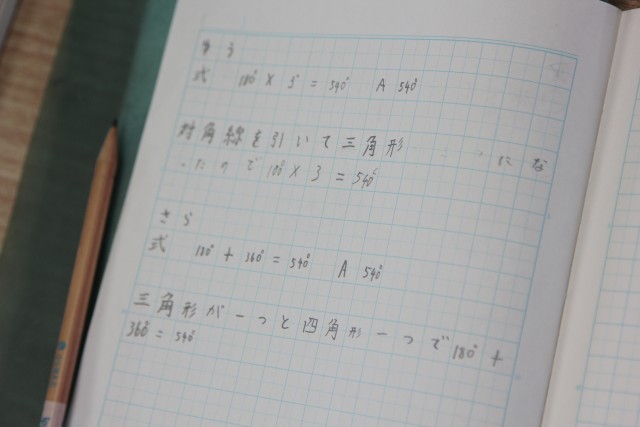 ゆう
式 180° × 3 = 540° A 540°
対角線を引いて三角形 にな
ったので 180° × 3 = 540°
さら
式 180° + 360° = 540° A 540°
三角形が一つと四角形一つで180° +
360° = 540°